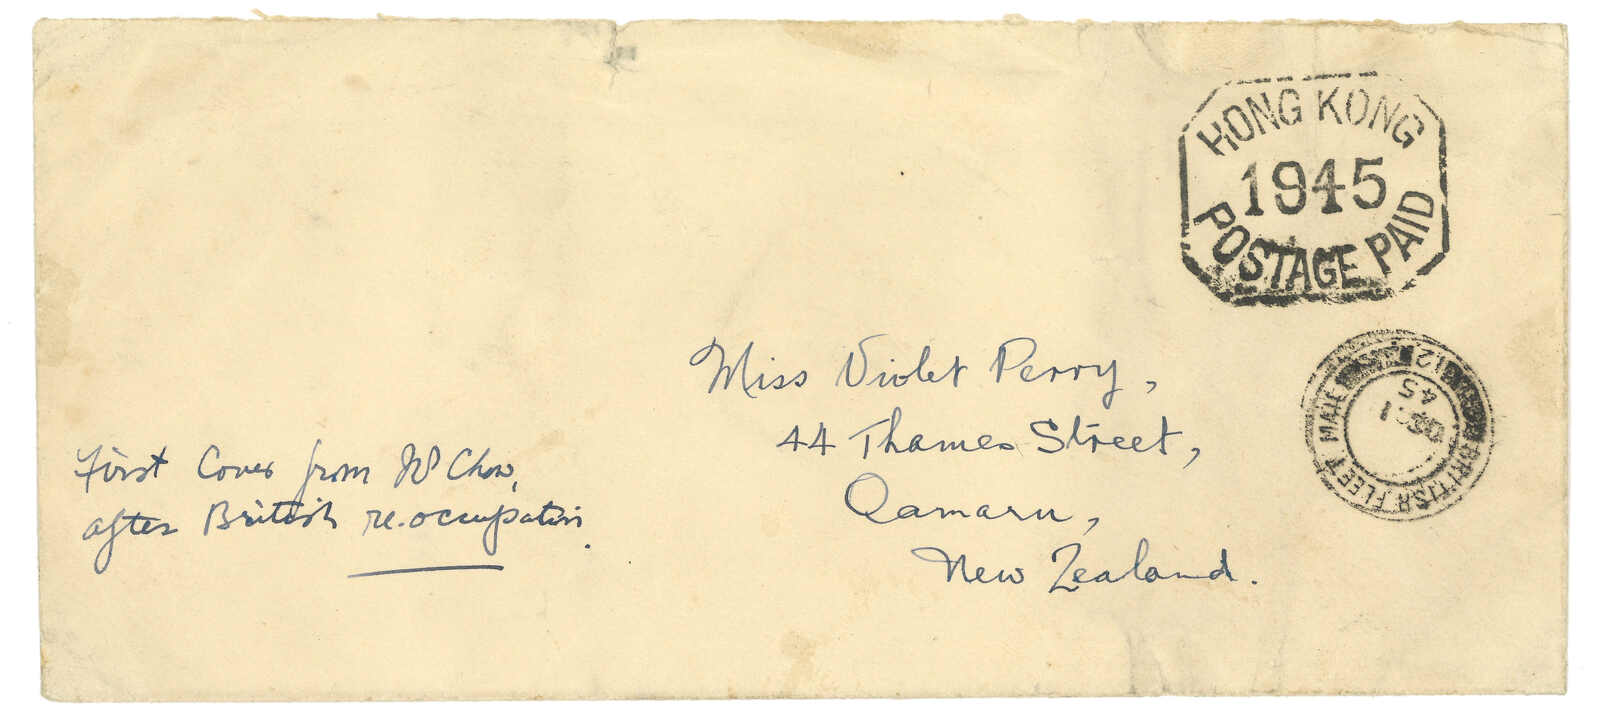 HONG KONG
1945
POSTAGE PAID
Miss Violet Perry,
44 Thames Street,
Oamaru,
New Zealand.
First Cover from Mr Chow,
after British re.occupation.
BRITISH FLEET MAIL
45